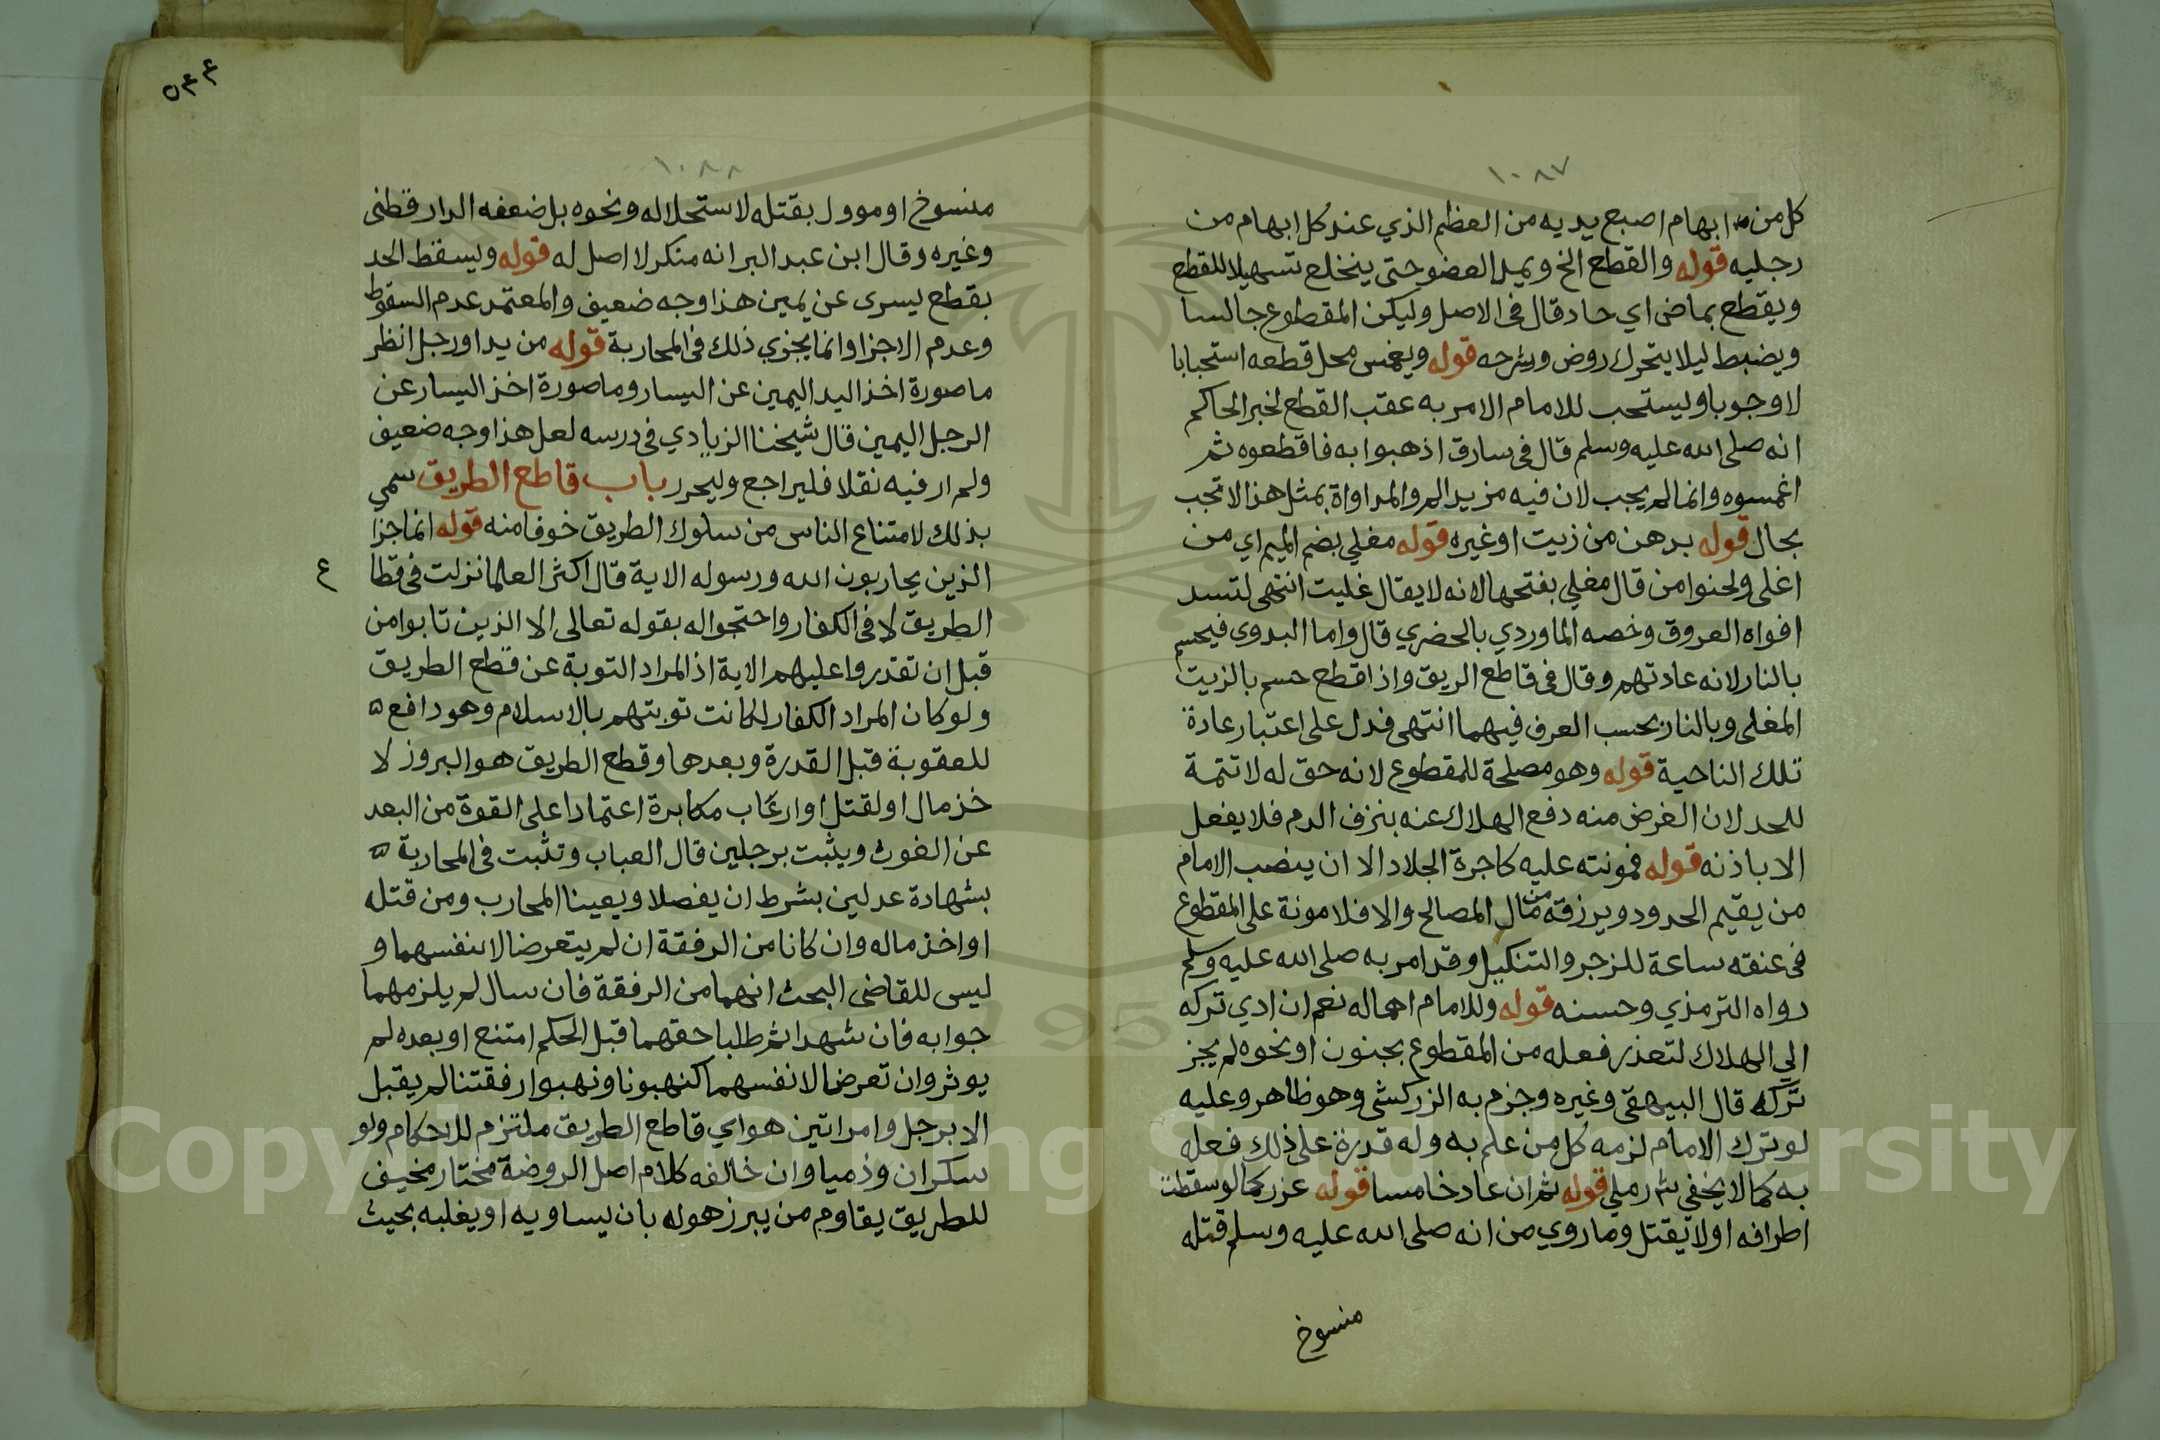 ١٠٨٧
كل من ابهام اصبع يديه من العظم الذي عند كل ابهام من
رجليه قوله والقطع الخ ويمد العضو حتى ينخلع تسهيلا للقطع
ويقطع بماضى اي حاد قال فى الاصل وليكن المقطوع جالسا
ويضبط ليلا يتحرك روض وشرحه قوله ويغمس محل قطعه استحبابا
لا وجوبا ويستحب للامام الامر به عقب القطع لخبر الحاكم
انه صلى الله عليه وسلم قال فى سارق اذهبوا به فاقطعوه ثم
اغمسوه وانما لم يجب لان فيه مزيد الم والمداواة بمثل هذا لا تجب
بحال قوله بدهن من زيت او غيره قوله مغلي بضم الميم اي من
اغلى ولحنوا من قال مغلي بفتحها لانه لا يقال غليت انتهى لتسد
افواه العروق وخصه الماوردي بالحضري قال واما البدوى فيحسم
بالنار لانه عادتهم وقال فى قاطع الريق واذا قطع حسم بالزيت
المغلى وبالنار بحسب العرف فيهما انتهى فدل على اعتبار عادة
تلك الناحية قوله وهو مصلحة للمقطوع لانه حق له لا تتمة
للحد لان الغرض منه دفع الهلاك عنه بنزف الدم فلا يفعل
الا باذنه قوله فمونته عليه كاجرة الجلاد الا ان ينصب الامام
من يقيم الحدود ويرزقه من مال المصالح والا فلا مونة على المقطوع
فى عنقه ساعة للزجر والتنكيل وقد امر به صلى الله عليه وسلم
رواه الترمذي وحسنه قوله وللامام اهماله نعم ان ادي تركه
الى الهلاك لتعذر فعله من المقطوع بجنون او نحوه لم يجز
تركه قال البيهقى وغيره وجزم به الزركشى وهو ظاهر وعليه
لو ترك الامام لزمه كل من علم به وله قدرة على ذلك فعله
به كما لا يخفى ش رملي قوله ثم ان عاد خامسا قوله عزر كما لو سقطت
اطرافه اولا يقتل وما روي من انه صلى الله عليه وسلم قتله
منسوخ
٥٤٤
١٠٨٨
منسوخ او موول بقتله لاستحلاله ونحوه بل ضعفه الدارقطنى
وغيره وقال ابن عبد البر انه منكر لا اصل له قوله ويسقط الحد
بقطع يسرى عن يمين هذا وجه ضعيف والمعتمد عدم السقوط
وعدم الاجزا وانما يجزي ذلك فى المحاربة قوله من يد او رجل انظر
ما صورة اخذ اليد اليمين عن اليسار وما صورة اخذ اليسار عن
الرجل اليمين قال شيخنا الزيادي فى درسه لعل هذا وجه ضعيف
ولم ار فيه نقلا فليراجع وليحرر باب قاطع الطريق سمي
بذلك لامتناع الناس من سلوك الطريق خوفا منه قوله انما جزا
الذين يحاربون الله ورسوله الاية قال اكثر العلما نزلت فى قطا
ع
الطريق لا فى الكفار واحتجوا له بقوله تعالى الا الذين تابوا من
قبل ان تقدروا عليهم الاية اذ المراد التوبة عن قطع الطريق
ولو كان المراد الكفار لكانت توبتهم بالاسلام وهو دافع
للعقوبة قبل القدرة وبعدها وقطع الطريق هو البروز لا
خذ مال او لقتل او ارعاب مكابرة اعتمادا على القوة من البعد
عن الغوث ويثبت برجلين قال العباب وتثبت فى المحاربة
بشهادة عدلين بشرط ان يفصلا ويعينا المحارب ومن قتله
او اخذ ماله وان كانا من الرفقة ان لم يتعرضا لانفسهما و
ليس للقاضى البحث انهما من الرفقة فان سال لم يلزمهما
جوابه فان شهدا ثم طلبا حقهما قبل الحكم امتنع او بعده لم
يوثر وان تعرضا لانفسهما كنهبونا ونهبوا رفقتنا لم يقبل
الا برجل وامراتين هو اي قاطع الطريق ملتزم للاحكام ولو
سكران وذميا وان خالفه كلام اصل الروضة مختار مخيف
للطريق يقاوم من يبرز هو له بان يساويه او يغلبه بحيث
Copyright © King Saud University
1957